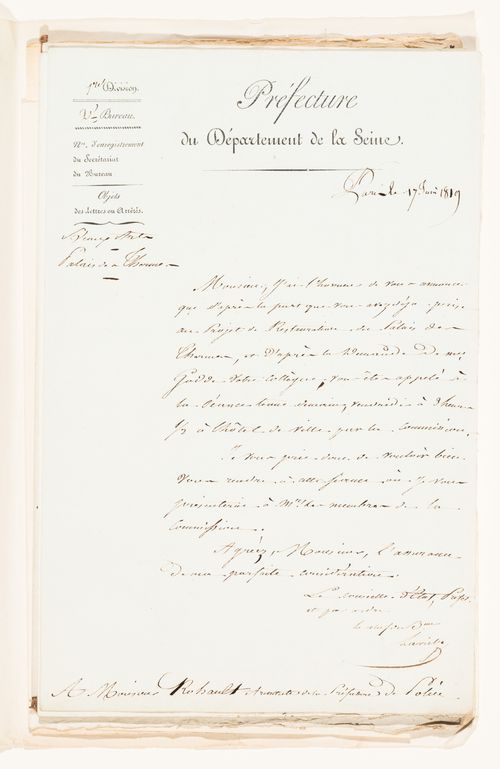 1re Division.
Ve Bureau.
Nos d'enregistrement
du Secrétariat
du Bureau
Objets
des Lettres ou Arrêtés.
Beaux Arts
Palais des Thermes
Préfecture
du Département de la Seine.
Paris, le 17 Juin 1819
Monsieur, J'ai l'honneur de vous annoncer
que d'après la part que vous avez déjà prise
au Projet de Restauration du Palais des
Thermes, et d'après la demande de mr
Godde votre collègue, vous êtes appelé à
la Séance tenue demain, vendredi à 3 heures
1/2 à l'hôtel de ville par la commission.
Je vous prie donc de vouloir bien
vous rendre à cette séance où je vous
présenterai à Mrs les membres de la
Commission.
Agréez, Monsieur, l'assurance
de ma parfaite considération.
Le conseiller d'État, Préfet
et par ordre
le chef de Bau
A Monsieur Rohault Architecte de la Préfecture de Police